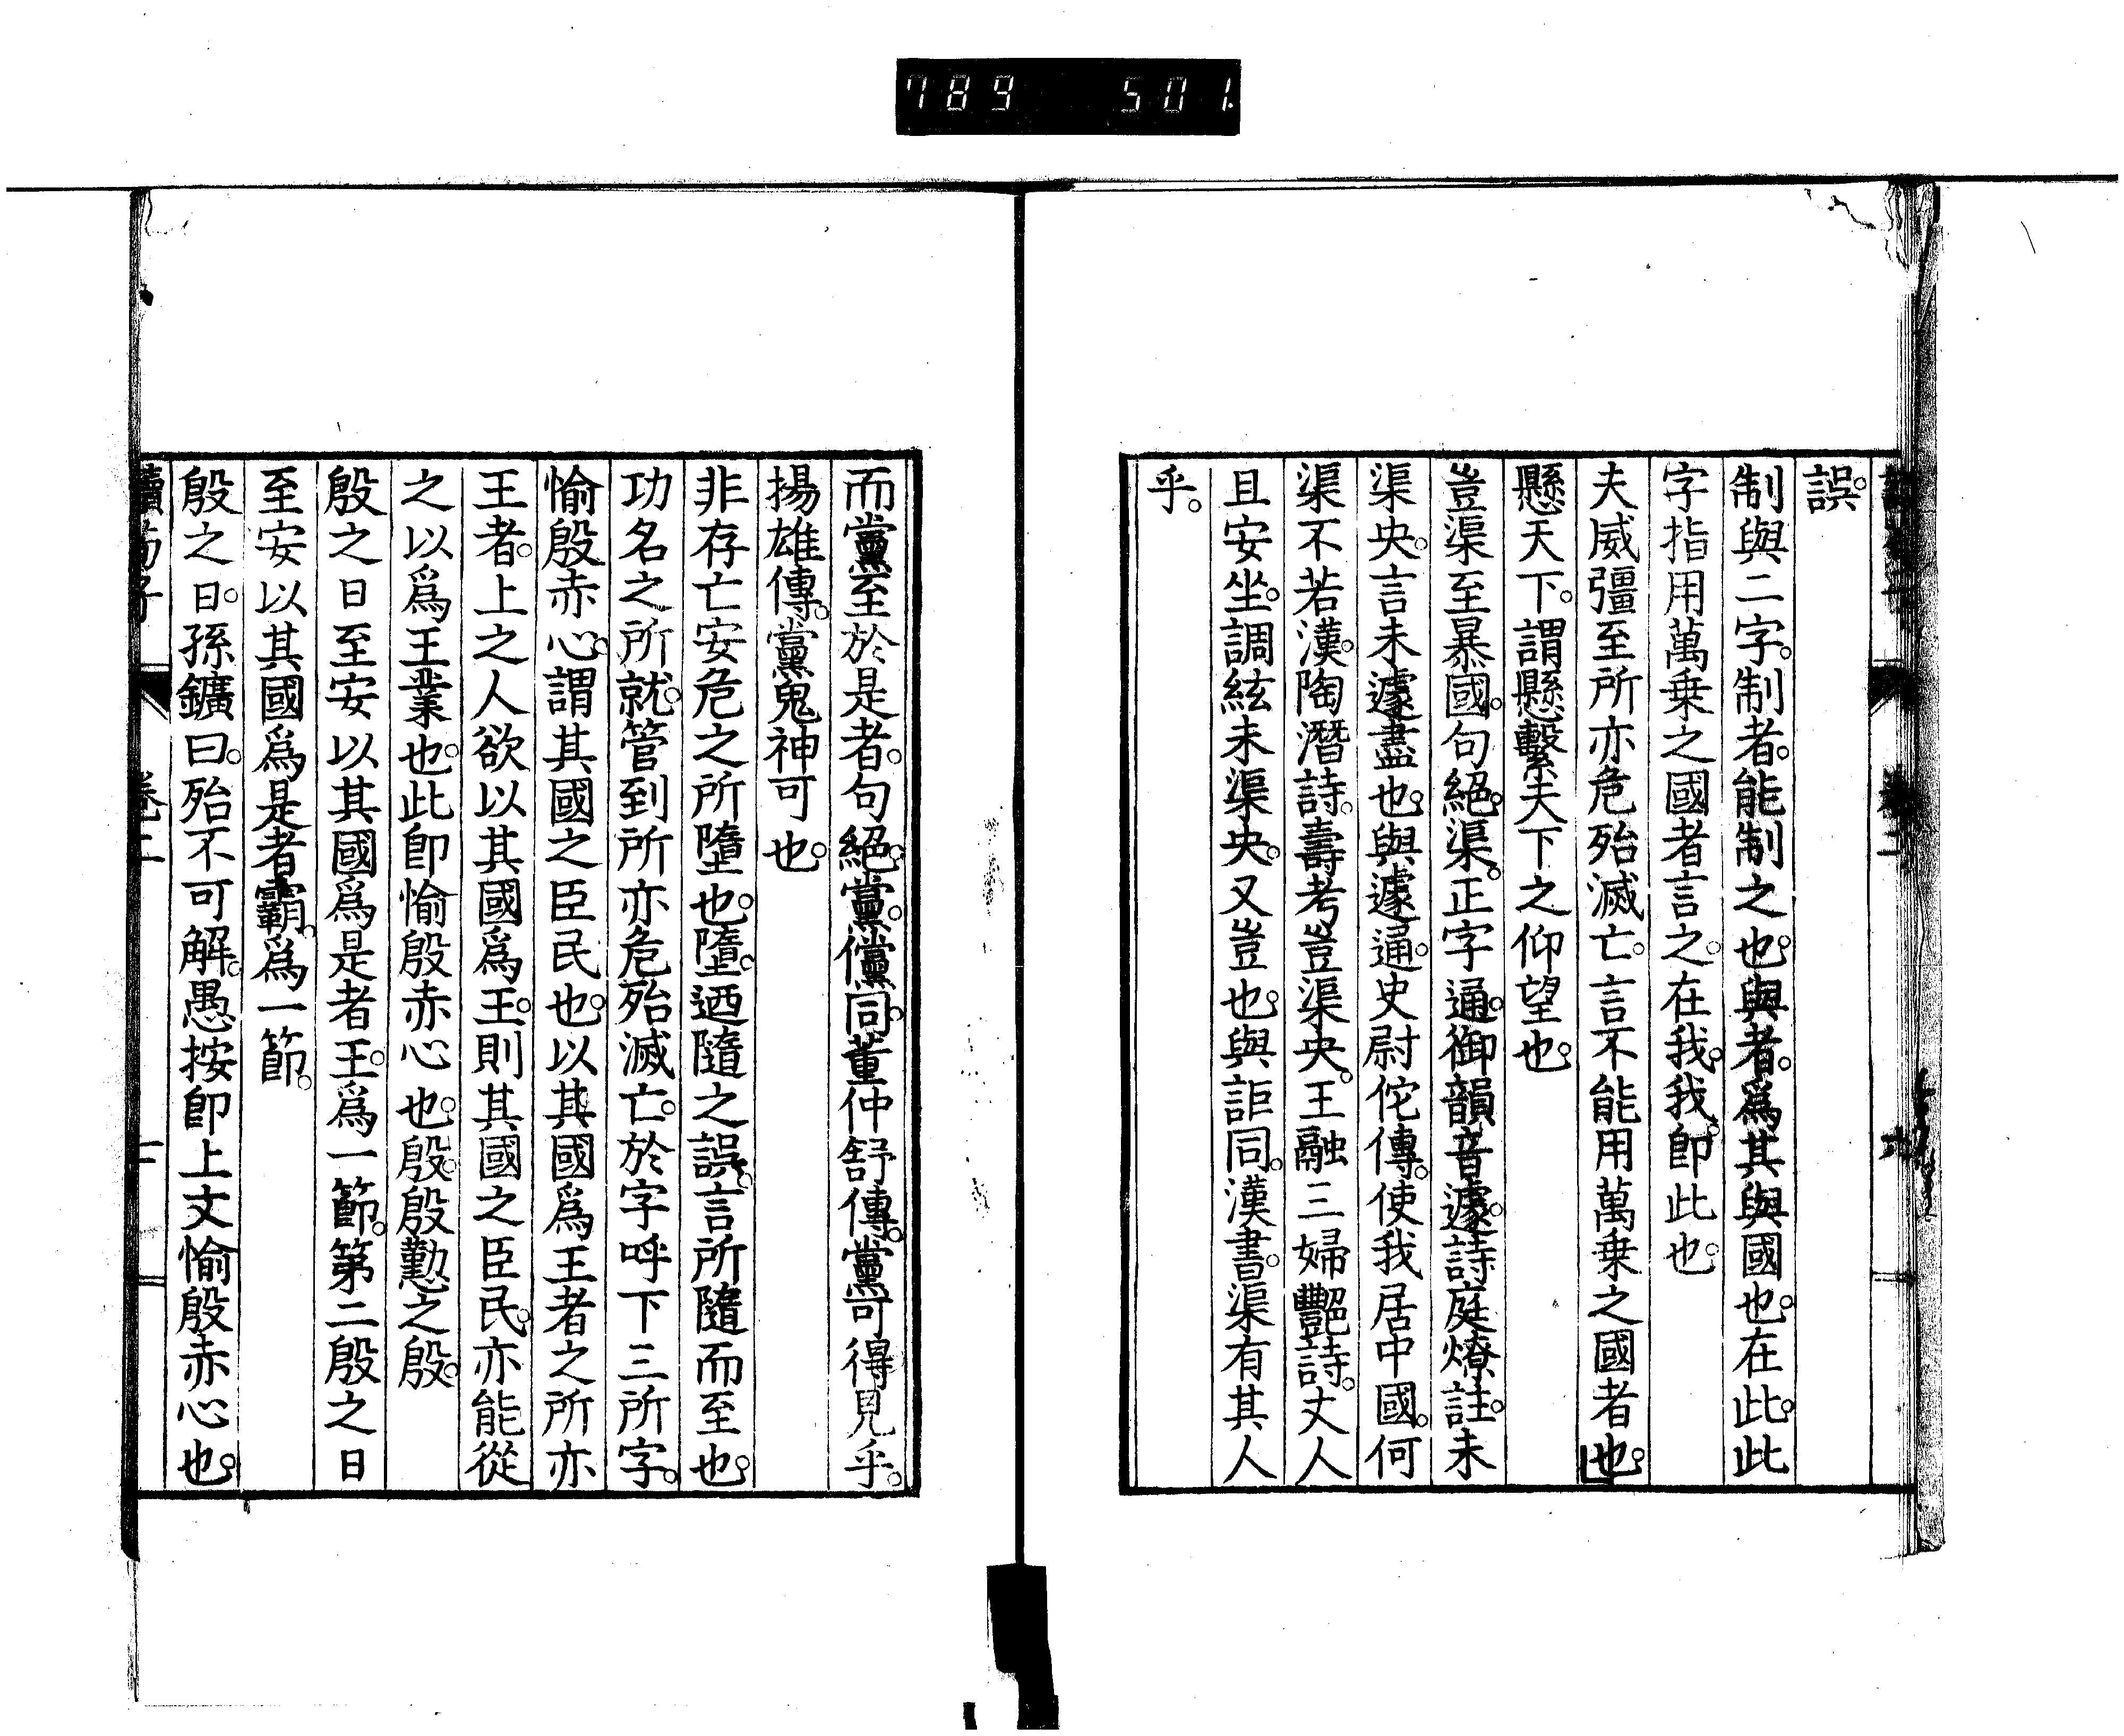 789 501
誤。
制與二字。制者。能制之也。與者。爲其與國也。在此。此
字指用萬乗之國者言之。在我。我。卽此也。
夫威彊至所亦危殆滅亡。言不能用萬乗之國者也。
懸天下。謂懸繫天下之仰望也。
豈渠至暴國。句絕。渠。正字通。御韻音遽。詩庭燎註。未
渠央。言未遽盡也。與遽通。史尉佗傳。使我居中國。何
渠不若漢。陶潛詩。壽考豈渠央。王融三婦艷詩。丈人
且安坐。調絃未渠央。又豈也。與詎同。漢書。渠有其人
乎。
而黨至於是者。句絕。黨。儻同。董仲舒傳。黨可得見乎。
揚雄傳。黨鬼神可也。
非存亡安危之所墮也。墮。迺隨之誤。言所隨而至也。
功名之所就。管到所亦危殆滅亡。於字呼下三所字。
愉殷赤心。謂其國之臣民也。以其國爲王者之所亦
王者。上之人欲以其國爲王。則其國之臣民。亦能從
之以爲王業也。此卽愉殷赤心也。殷。殷懃之殷。
殷之日至安以其國爲是者王。王爲一節。第二殷之日
至安以其國爲是者霸。爲一節。
殷之日。孫鑛曰。殆不可解。愚按卽上文愉殷赤心也。
讀荀子 卷二